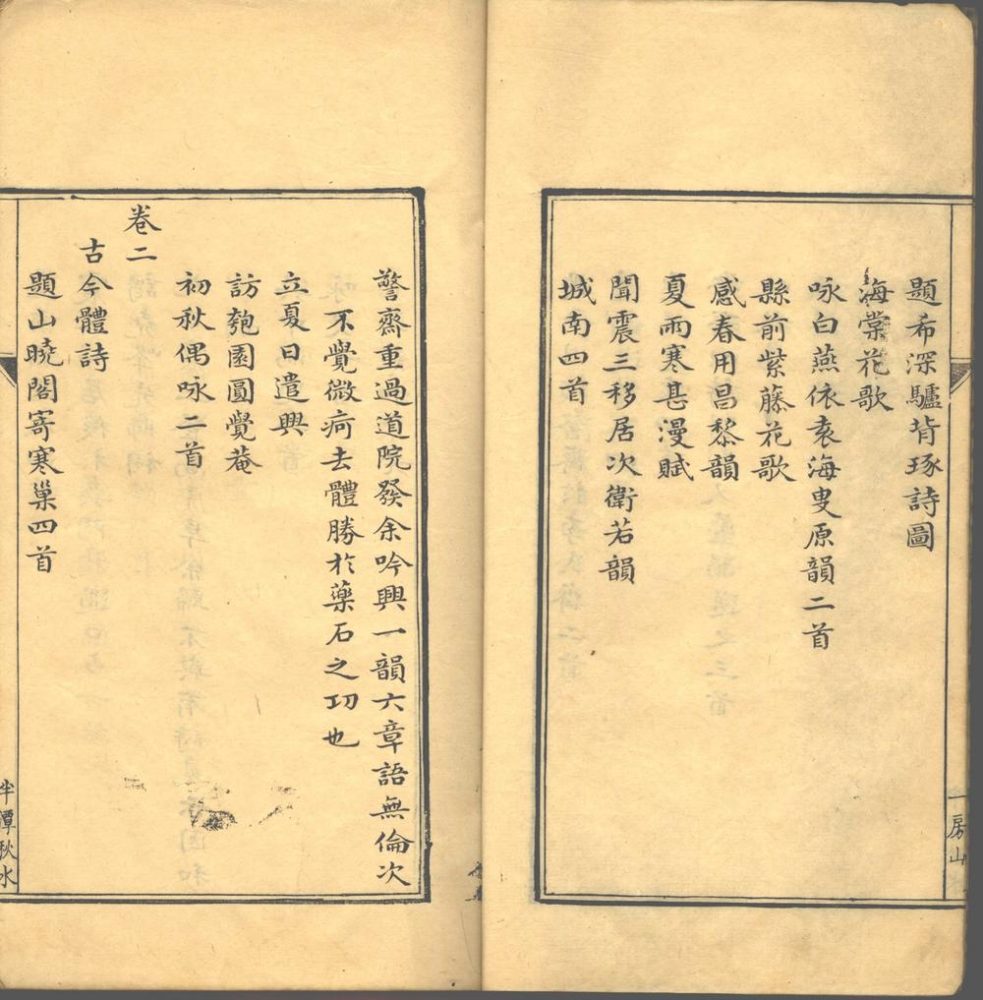 題希深驢背琢詩圖
海棠花歌
咏白燕依袁海叟原韻二首
縣前紫藤花歌
感春用昌黎韻
夏雨寒甚漫賦
聞震三移居次衛若韻
城南四首
一房山
警齋重過道院發余吟興一韻六章語無倫次
不覺微疴去體勝於藥石之功也
立夏日遣興
訪匏園圓覺菴
初秋偶咏二首
卷二
古今體詩
題山曉閣寄寒巢四首
半潭秋水